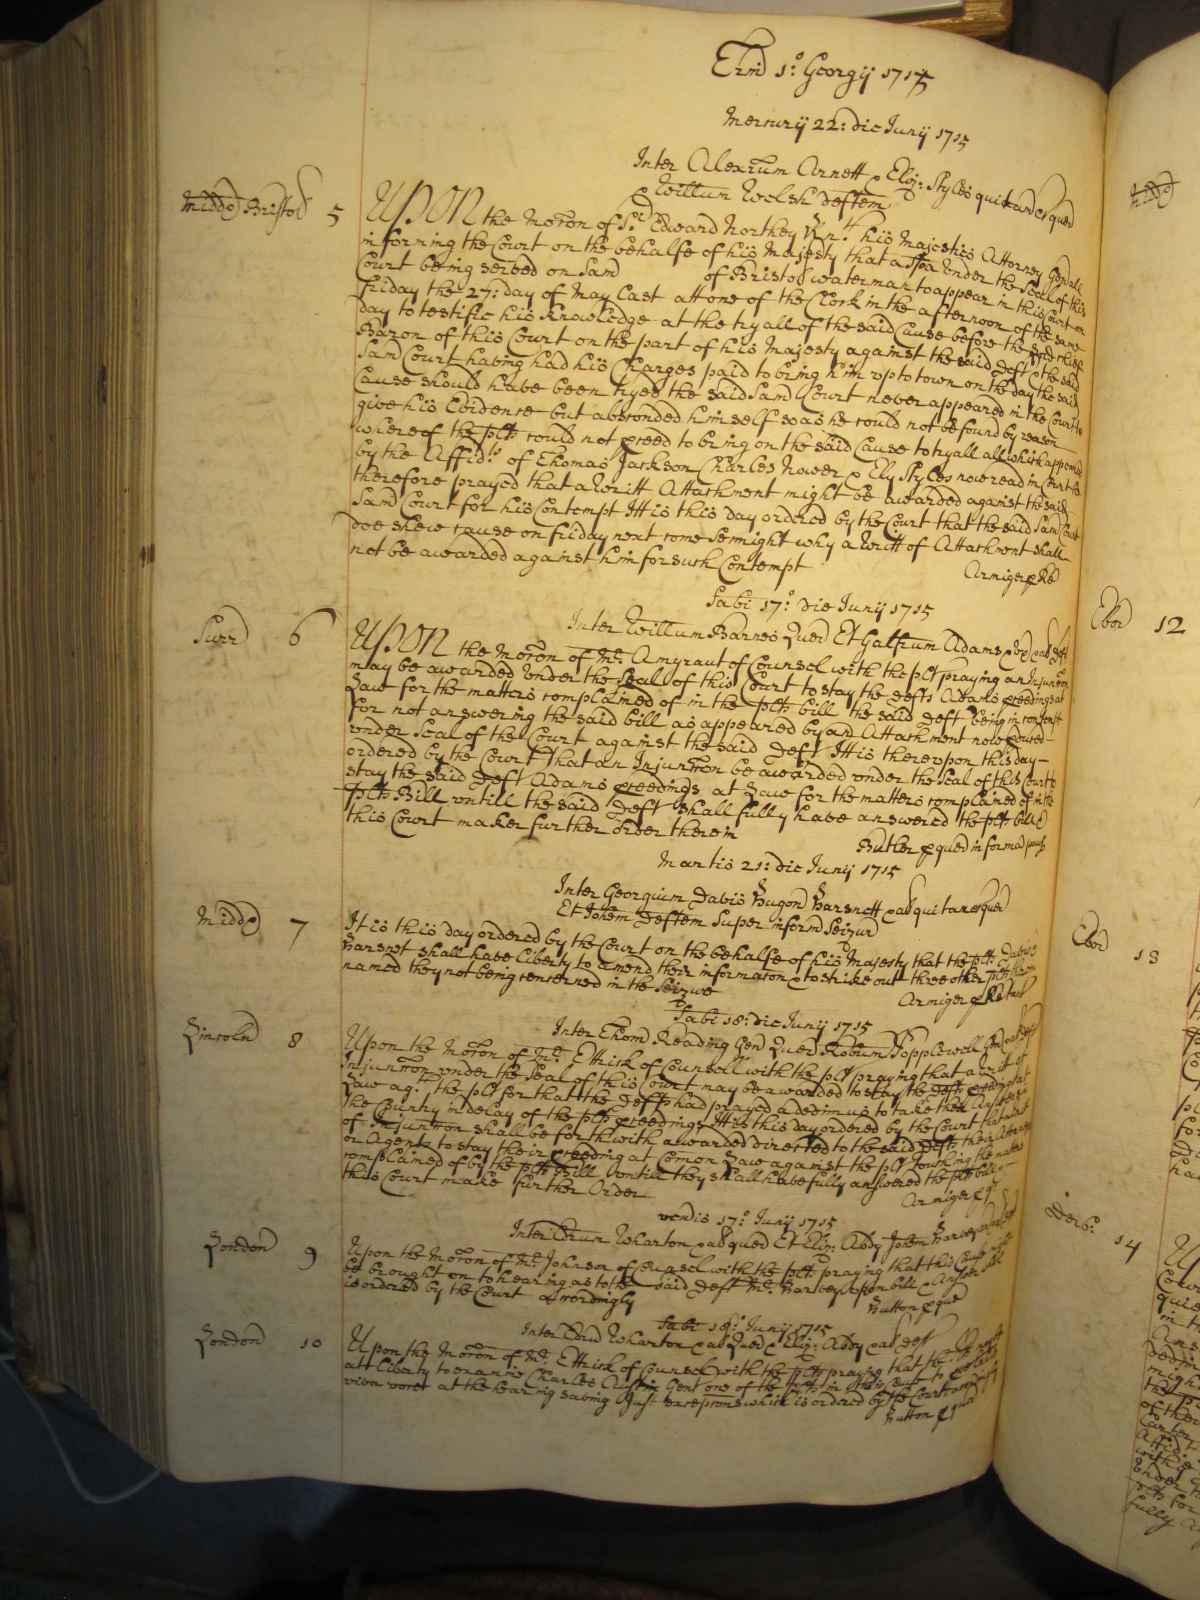 Trin 1.° Georgij 1715
Mercurij 22: die Junij 1715
Inter Alexrum Arnett & Eliz: Styles qui tam &c quer
& Willum Welsh Deftem
Midds Bristol 5 UPON the Moron of Sr. Edward Northey Knt. his Majesties Attorney Genall
informing the Court on the behalfe of his Majesty that a Spa under the Seal of this
Court being served on Sam of Bristol waterman to appear in this Court on
friday the 27: day of May last att one of the Clock in the afternoon of the same
day to testifie his knowledge at the tryall of the said Cause before the Lord Chief
Baron of this Court on the part of his Majesty against the said Deft & the said
Sam Court having had his Charges paid to bring him up to town on the day the said
Cause should have been tryed the said Sam Court never appeared in the Court to
give his Evidence but absconded himself so as he could not be found by reason
whereof the plts could not pceed to bring on the said Cause to tryall all which appeared
by the Affidts of Thomas Jackson Charles Nower & Ely Styles now read in Court
therefore prayed that a Writt Attachment might be awarded against the said
Sam Court for his Contempt It is this day ordered by the Court that the said Sam Court
doe shew cause on friday next come Sennight why a Writt of Attachment shall
not be awarded against him for such Contempt
Armiger p Re
Sabi 17.° die Junij 1715
Surr 6 Inter Willum Barnes Quer Et Galfrum Adams Deft
UPON the Moron of Mr. Amyraut of Counsel with the plt praying an Injuncon
may be awarded under the Seal of this Court to stay the Defts Adams pceedings at
Law for the matters complained of in the plts bill the said Deft being in contempt
for not answering the said bill as appeared by an Attachment now pduced
under Seal of the Court against the said Deft It is thereupon this day
ordered by the Court that an Injuncon be awarded under the Seal of this Court to
stay the said Deft Adams pceedings at Law for the matters complained of in the
plts Bill untill the said Deft shall fully have answered the plts bill &
this Court maker further order therein
Butler p quer in forma paup
Martis 21: die Junij 1715
Inter Georgium Davis Hugon Barsnett & al qui tam &c quer
Et Johem Deftem Super inform Seizur
Midds 7 It is this day ordered by the Court on the behalfe of his Majesty that the plts Davis &
Barsnet shall have liberty to amend their informaton & to strike out three other plts therein
named they not being concerned in the Seizure
Armiger p
Sabi 18: die Junij 1715
Inter Thom Reading Gen Quer Robtum Popplewell Gen & al Deft
Lincoln 8 Upon the Moron of Mr. Ettrick of Counsell with the plt praying that a writt of
Injuncon under the Seal of this Court may be awarded to stay the Defts pceedings at
Law agt. the plt for that the Defts had prayed a dedimus to take their Answers in
the Country in delay of the plts pceedings It is this day ordered by the Court that a Writt
of Injuncon shall be forthwith awarded directed to the said Defts their Attorneys
or Agents to stay their pceeding at Comon Law against the plt touching the matters
complained of by the plts Bill untill they shall have fully answered the plts bill &
this Court make further Order
Armiger p q
Vendis 17.° Junij 1715
Inter Edrum Wharton & al quer Et Eliz: Abdy Johem Harvey
London 9 Upon the Moron of Mr. Johnson of Counsel with the plts praying that this Cause might
be brought on to hearing as to the said Deft Mr. Harvey upon bill & Answer
is ordered by the Court accordingly
Hutton p que
Sabi 18.° Junij 1715
Inter Edrd Wharton & al Quer & Eliz: Abdy & al Deft
London 10 Upon the Moron of Mr. Ettrick of Counsel with the plts praying that the
att liberty to examine Charles Austin Gent one of the plts in this Cause
viva voce at the hearing saving Just exceptions which is ordered by the Court accordingly
Hutton p quer
Midds
Ebor 12
Ebor 13
Derb. 14